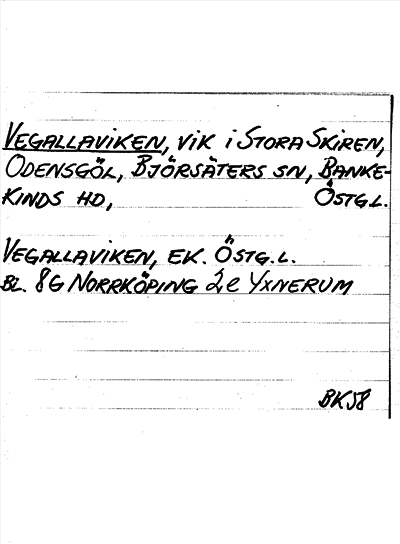 VEGALLAVIKEN, VIK I STORA SKIREN,
ODENSGÖL, BJÖRSÄTERS SN, BANKE-
KINDS HD, ÖSTG.L.
VEGALLAVIKEN, EK. ÖSTG.L.
BL. 8G NORRKÖPING 2e YXNERUM
BK58